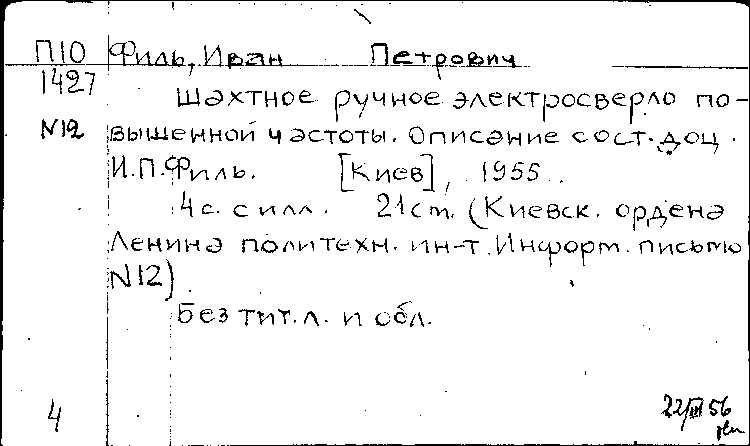 П10 Филь, Иван Петрович
1427
Шахтное ручное электросверло по-
N12 вышенной частоты. Описание сост. доц.
И.П.Филь. [Киев], 1955.
4с. с илл. 21cm. (Киевск. ордена
Ленина политехн. ин-т. Информ. письмо
N12)
Без тит. л. и обл.
4 22/III 56